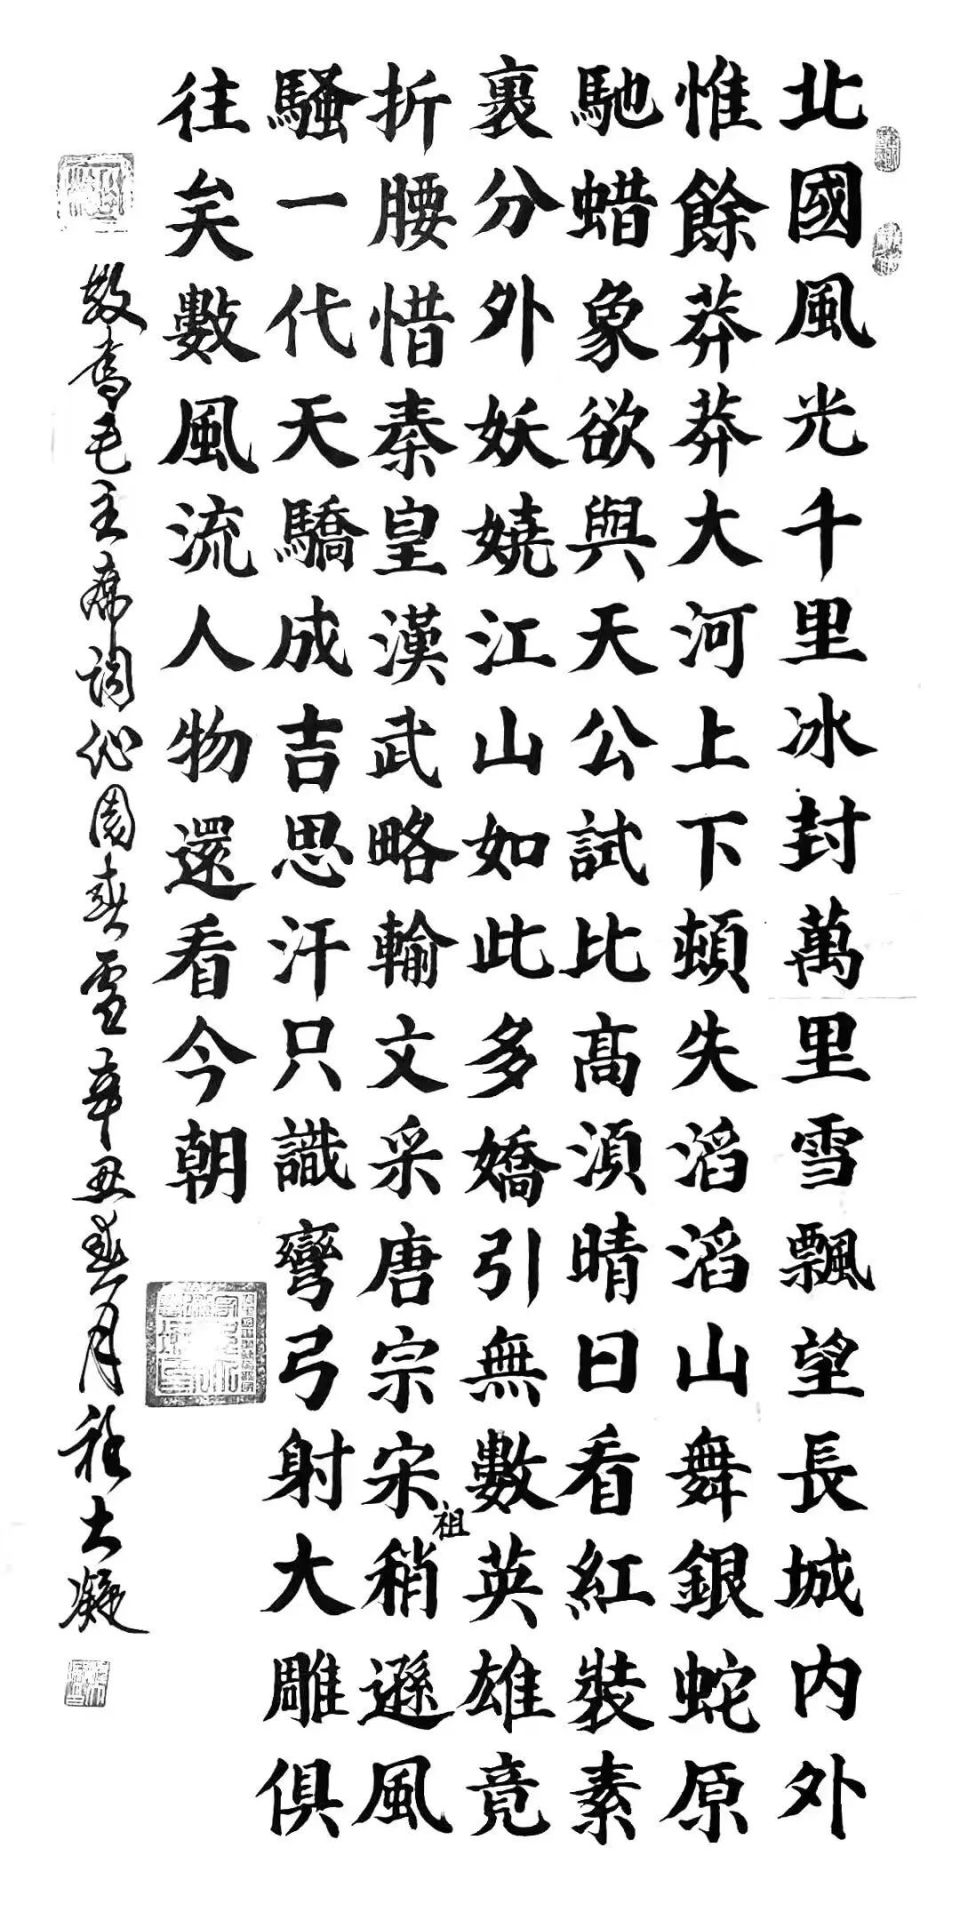 北國風光千里冰封萬里雪飄望長城内外
惟餘莽莽大河上下頓失滔滔山舞銀蛇原
馳蜡象欲與天公試比髙湏晴日看紅裝素
裹分外妖嬈江山如此多嬌引無數英雄竟
折腰惜秦皇漢武略輸文采唐宗宋祖稍遜風
騷一代天驕成吉思汗只識彎弓射大雕俱
往矣數風流人物還看今朝
敬書毛主席詞沁園春雪辛丑春月凝